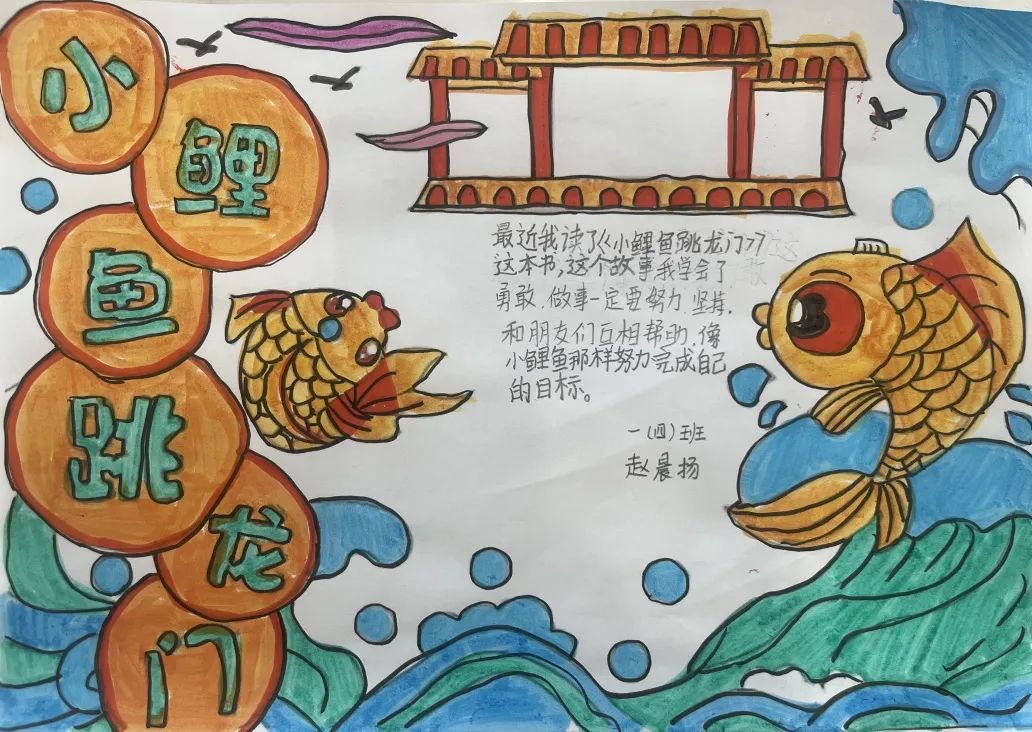 小
鲤
鱼
跳
龙
门
最近我读了《小鲤鱼跳龙门》
这本书,这个故事我学会了
勇敢.做事一定要努力.坚持.
和朋友们互相帮助.像
小鲤鱼那样努力完成自己
的目标。
一(四)班
赵晨扬